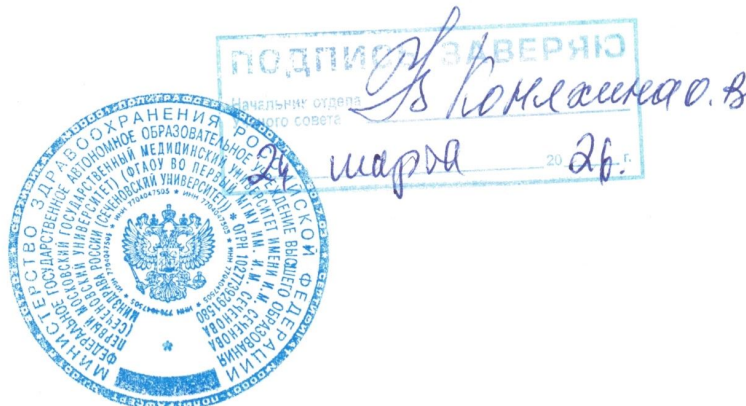 ПОДПИСЬ ЗАВЕРЯЮ
Начальник отдела
Ученого совета
Коняхина О.В
24 марта 2026. г.
МИНИСТЕРСТВО ЗДРАВООХРАНЕНИЯ РОССИЙСКОЙ ФЕДЕРАЦИИ
ФЕДЕРАЛЬНОЕ ГОСУДАРСТВЕННОЕ АВТОНОМНОЕ ОБРАЗОВАТЕЛЬНОЕ УЧРЕЖДЕНИЕ ВЫСШЕГО ОБРАЗОВАНИЯ
ПЕРВЫЙ МОСКОВСКИЙ ГОСУДАРСТВЕННЫЙ МЕДИЦИНСКИЙ УНИВЕРСИТЕТ ИМЕНИ И.М. СЕЧЕНОВА
МИНЗДРАВА РОССИИ (СЕЧЕНОВСКИЙ УНИВЕРСИТЕТ)
(СЕЧЕНОВСКИЙ УНИВЕРСИТЕТ) (ФГАОУ ВО ПЕРВЫЙ МГМУ ИМ. И.М. СЕЧЕНОВА
* ОГРН 1027739291580
* ИНН 7704047505 *